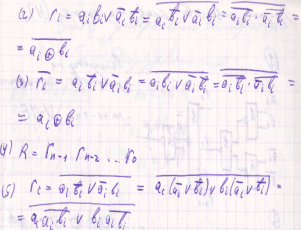 (2) rᵢ = aᵢbᵢ ∨ a̅ᵢb̅ᵢ = \overline{aᵢb̅ᵢ ∨ a̅ᵢbᵢ} = \overline{\overline{aᵢbᵢ} · \overline{a̅ᵢb̅ᵢ}} =
= \overline{aᵢ ⊕ bᵢ}
(3) r̅ᵢ = aᵢb̅ᵢ ∨ a̅ᵢbᵢ = \overline{aᵢbᵢ ∨ a̅ᵢb̅ᵢ} = \overline{\overline{aᵢb̅ᵢ} · \overline{a̅ᵢbᵢ}} =
= aᵢ ⊕ bᵢ
(4) R = rₙ₋₁ rₙ₋₂ ... r₀
(5) rᵢ = \overline{aᵢb̅ᵢ ∨ a̅ᵢbᵢ} = \overline{aᵢ(a̅ᵢ ∨ b̅ᵢ) ∨ bᵢ(a̅ᵢ ∨ b̅ᵢ)} =
= \overline{aᵢ\overline{aᵢbᵢ} ∨ bᵢ\overline{aᵢbᵢ}}